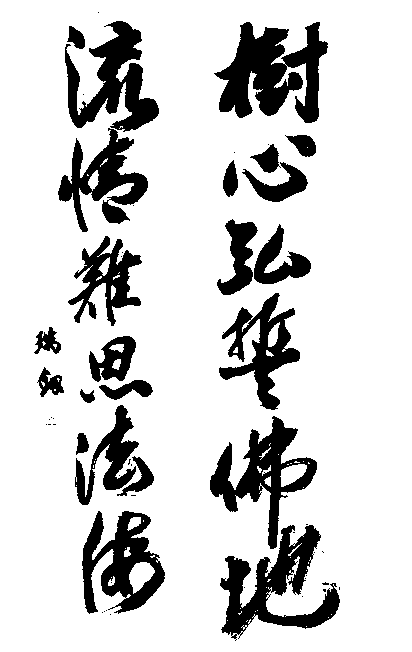 樹心弘誓佛地
流情難思法海
瑞劔